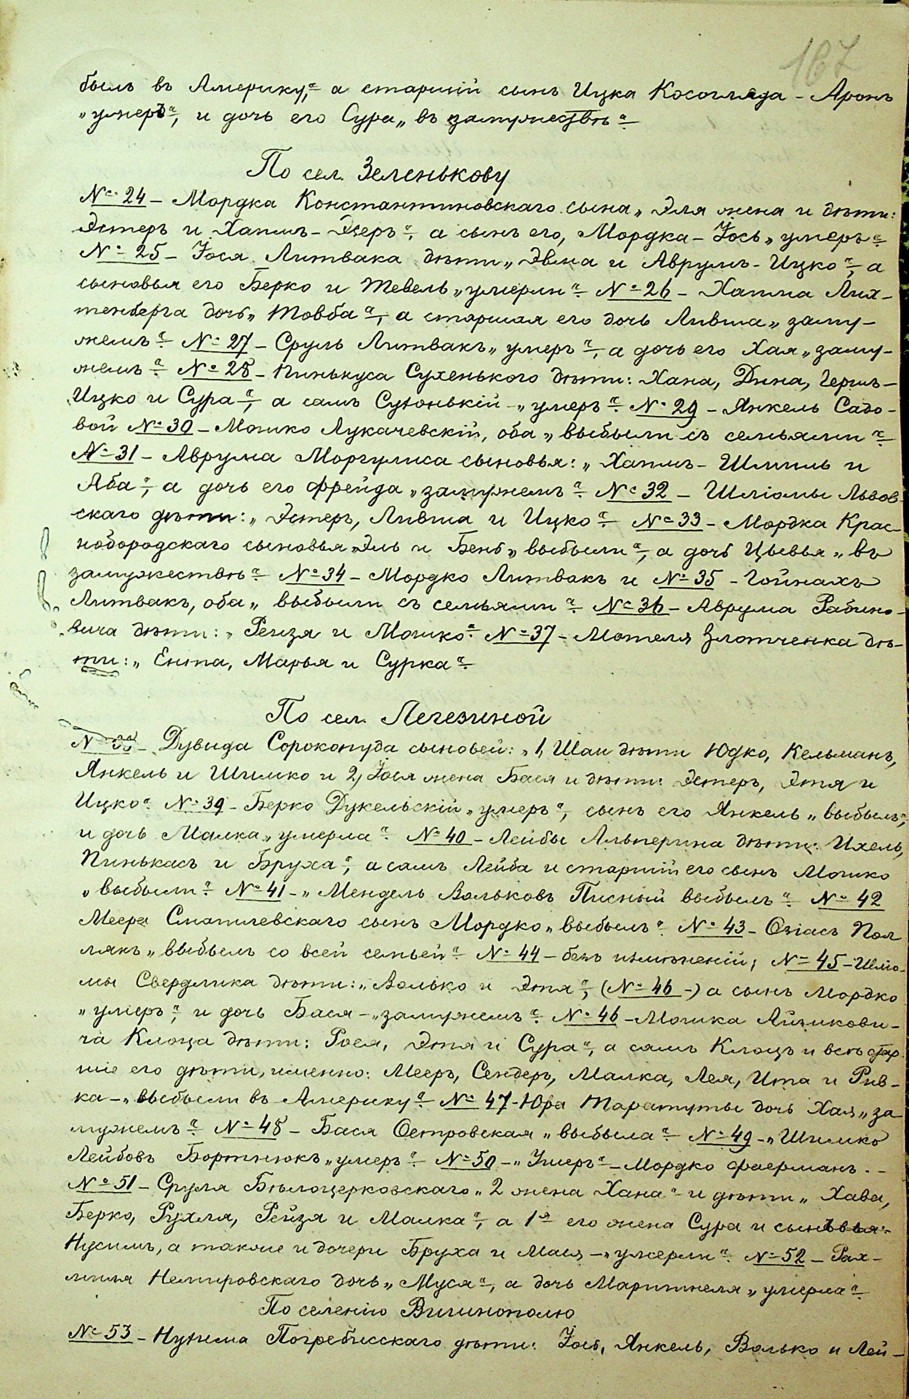 167
былъ въ Америку", а старшій сынъ Ицка Косогляда - Аронъ
"умеръ", и дочь его Сура "въ замужествѣ"
По сел. Зеленькову
№ 24 - Мордка Константиновскаго сына "Эля жена и дѣти:
Эстеръ и Хаимъ-Герь", а сынъ его, Мордка - Іось "умеръ"
№ 25 - Іося Литвака дѣти "Эвма и Аврумъ-Ицко", а
сыновья его Берко и Тевель "умерли" № 26 - Хаима Лих-
тенберга дочь "Товба", а старшая его дочь Ливша "заму-
жемъ" № 27 - Сруль Литвакъ "умеръ", а дочь его Хая "заму-
жемъ" № 28 - Пинькуса Сухенького дѣти: Хана, Дина, Гершъ-
Ицко и Сура", а самъ Сухонькій - "умеръ" № 29 - Янкель Садо-
вой № 30 - Мошко Лукачевскій, оба "выбыли съ семьями"
№ 31 - Аврума Моргулиса сыновья: "Хаимъ-Шмиль и
Аба", а дочь его Фрейда "замужемъ" № 32 - Шліомы Львов-
скаго дѣти: "Эстеръ, Ливша и Ицко" № 33 - Мордка Крас-
нобородскаго сыновья "Эль и Бенъ" выбыли", а дочь Цывья "въ
замужествѣ" № 34 - Мордко Литвакъ и № 35 - Гойнахъ
Литвакъ, оба "выбыли съ семьями" № 36 - Аврума Рабино-
вича дѣти: "Рейзя и Мошко" № 37 - Мотеля Злотченка дѣ-
ти: "Ента, Марья и Сурка"
По сел. Легезиной
№ 38 - Дувида Сорокопуда сыновей: "1, Шаи дѣти Юдко, Кельманъ,
Янкель и Шимко и 2, Іося жена Бася и дѣти: Эстеръ, Этя и
Ицко" № 39 - Берко Дукельскій "умеръ", сынъ его Янкель "выбылъ",
и дочь Малка "умерла" № 40 - Лейбы Альперина дѣти: Ихель,
Пинькасъ и Бруха", а самъ Лейба и старшій его сынъ Мошко
"выбыли" № 41 - "Мендель Вольковъ Писный выбылъ" № 42
Меера Смотилевскаго сынъ Мордко "выбылъ" № 43 - Озіасъ Пол
лякъ "выбылъ со всей семьей" № 44 - безъ измѣненій; № 45 - Шліо-
мы Свердлика дѣти: "Волько и Этя", (№ 46 -) а сынъ Мордко
"умеръ", и дочь Бася - "замужемъ" № 46 - Мошка Айзикови-
ча Клоца дѣти: Рося, Этя и Сура", а самъ Клоцъ и всѣ стар-
шіе его дѣти, именно: Мееръ, Сендеръ, Малка, Лея, Ита и Рив-
ка - "выбыли въ Америку" № 47 - Юра Таратуты дочь Хая "за
мужемъ" № 48 - Бася Островская "выбыла" № 49 - "Шимко
Лейбовъ Бортнюкъ "умеръ" № 50 - "Умеръ" - Мордко Фаерманъ. -
№ 51 - Сруля Бѣлоцерковскаго "2 жена Хана" и дѣти "Хава,
Берко, Рухля, Рейзя и Малка", а 1я его жена Сура и сыновья:
Нусимъ, а также и дочери Бруха и Мася - "умерли" № 52 - Рах-
миля Немировскаго дочь "Муся", а дочь "умерла"
По селенію Вишнополю
№ 53 - Нухима Погребисскаго дѣти: Іось, Янкель, Волько и Лей-